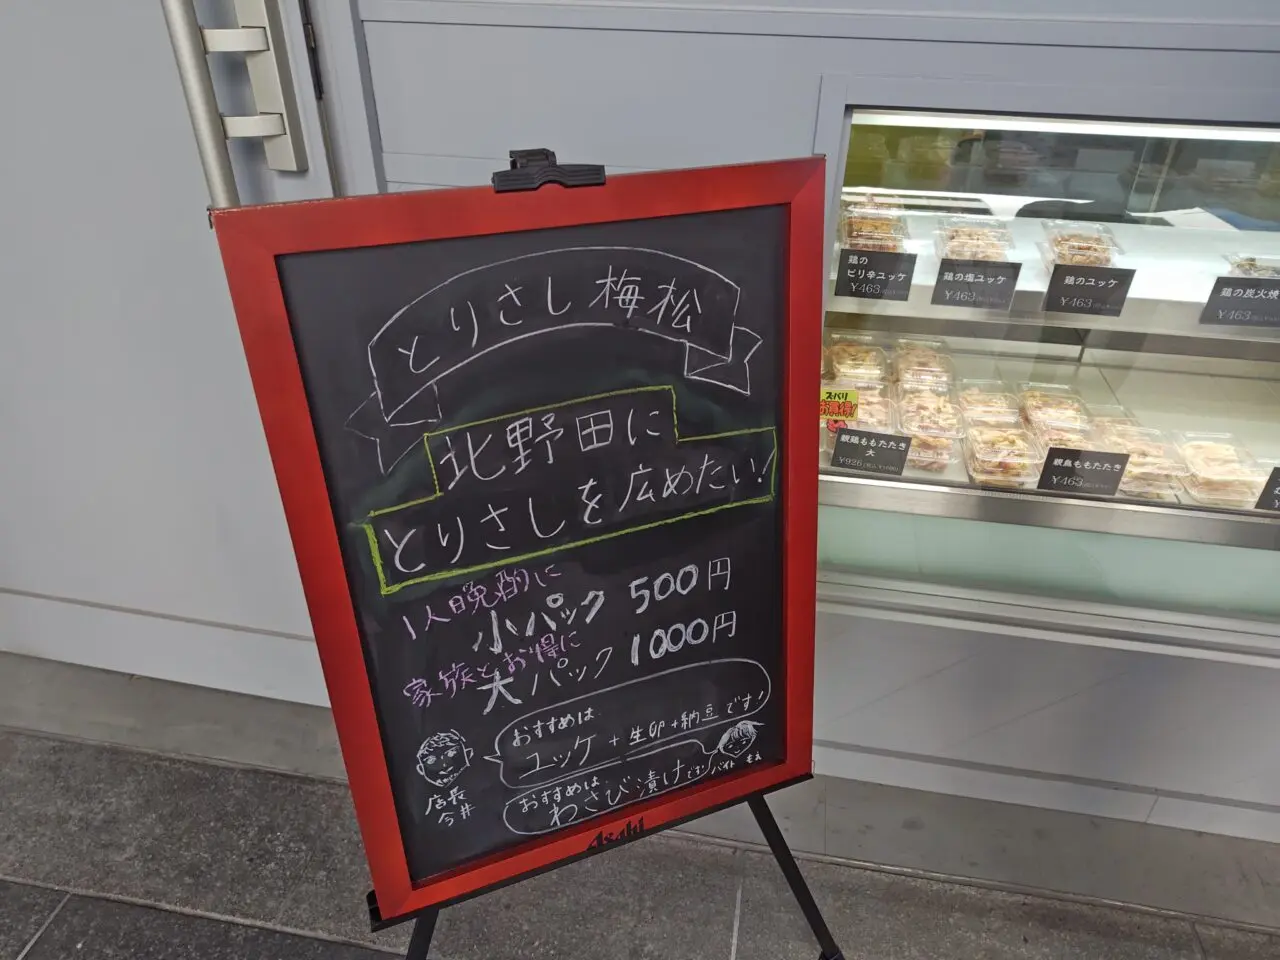 とりさし梅松
北野田に
とりさしを広めたい!
1人晩酌に
小パック 500円
家族とお得に
大パック 1000円
おすすめは
ユッケ+生卵+納豆です!
店長
今井
おすすめは
わさび漬けです
バイト もえ
Asahi
鶏の
ピリ辛ユッケ
¥463
鶏の塩ユッケ
¥463
鶏のユッケ
¥463
鶏の炭火焼
¥463
ズバリ
お買得!
親鶏ももたたき
大
¥926
親鳥ももたたき
¥463